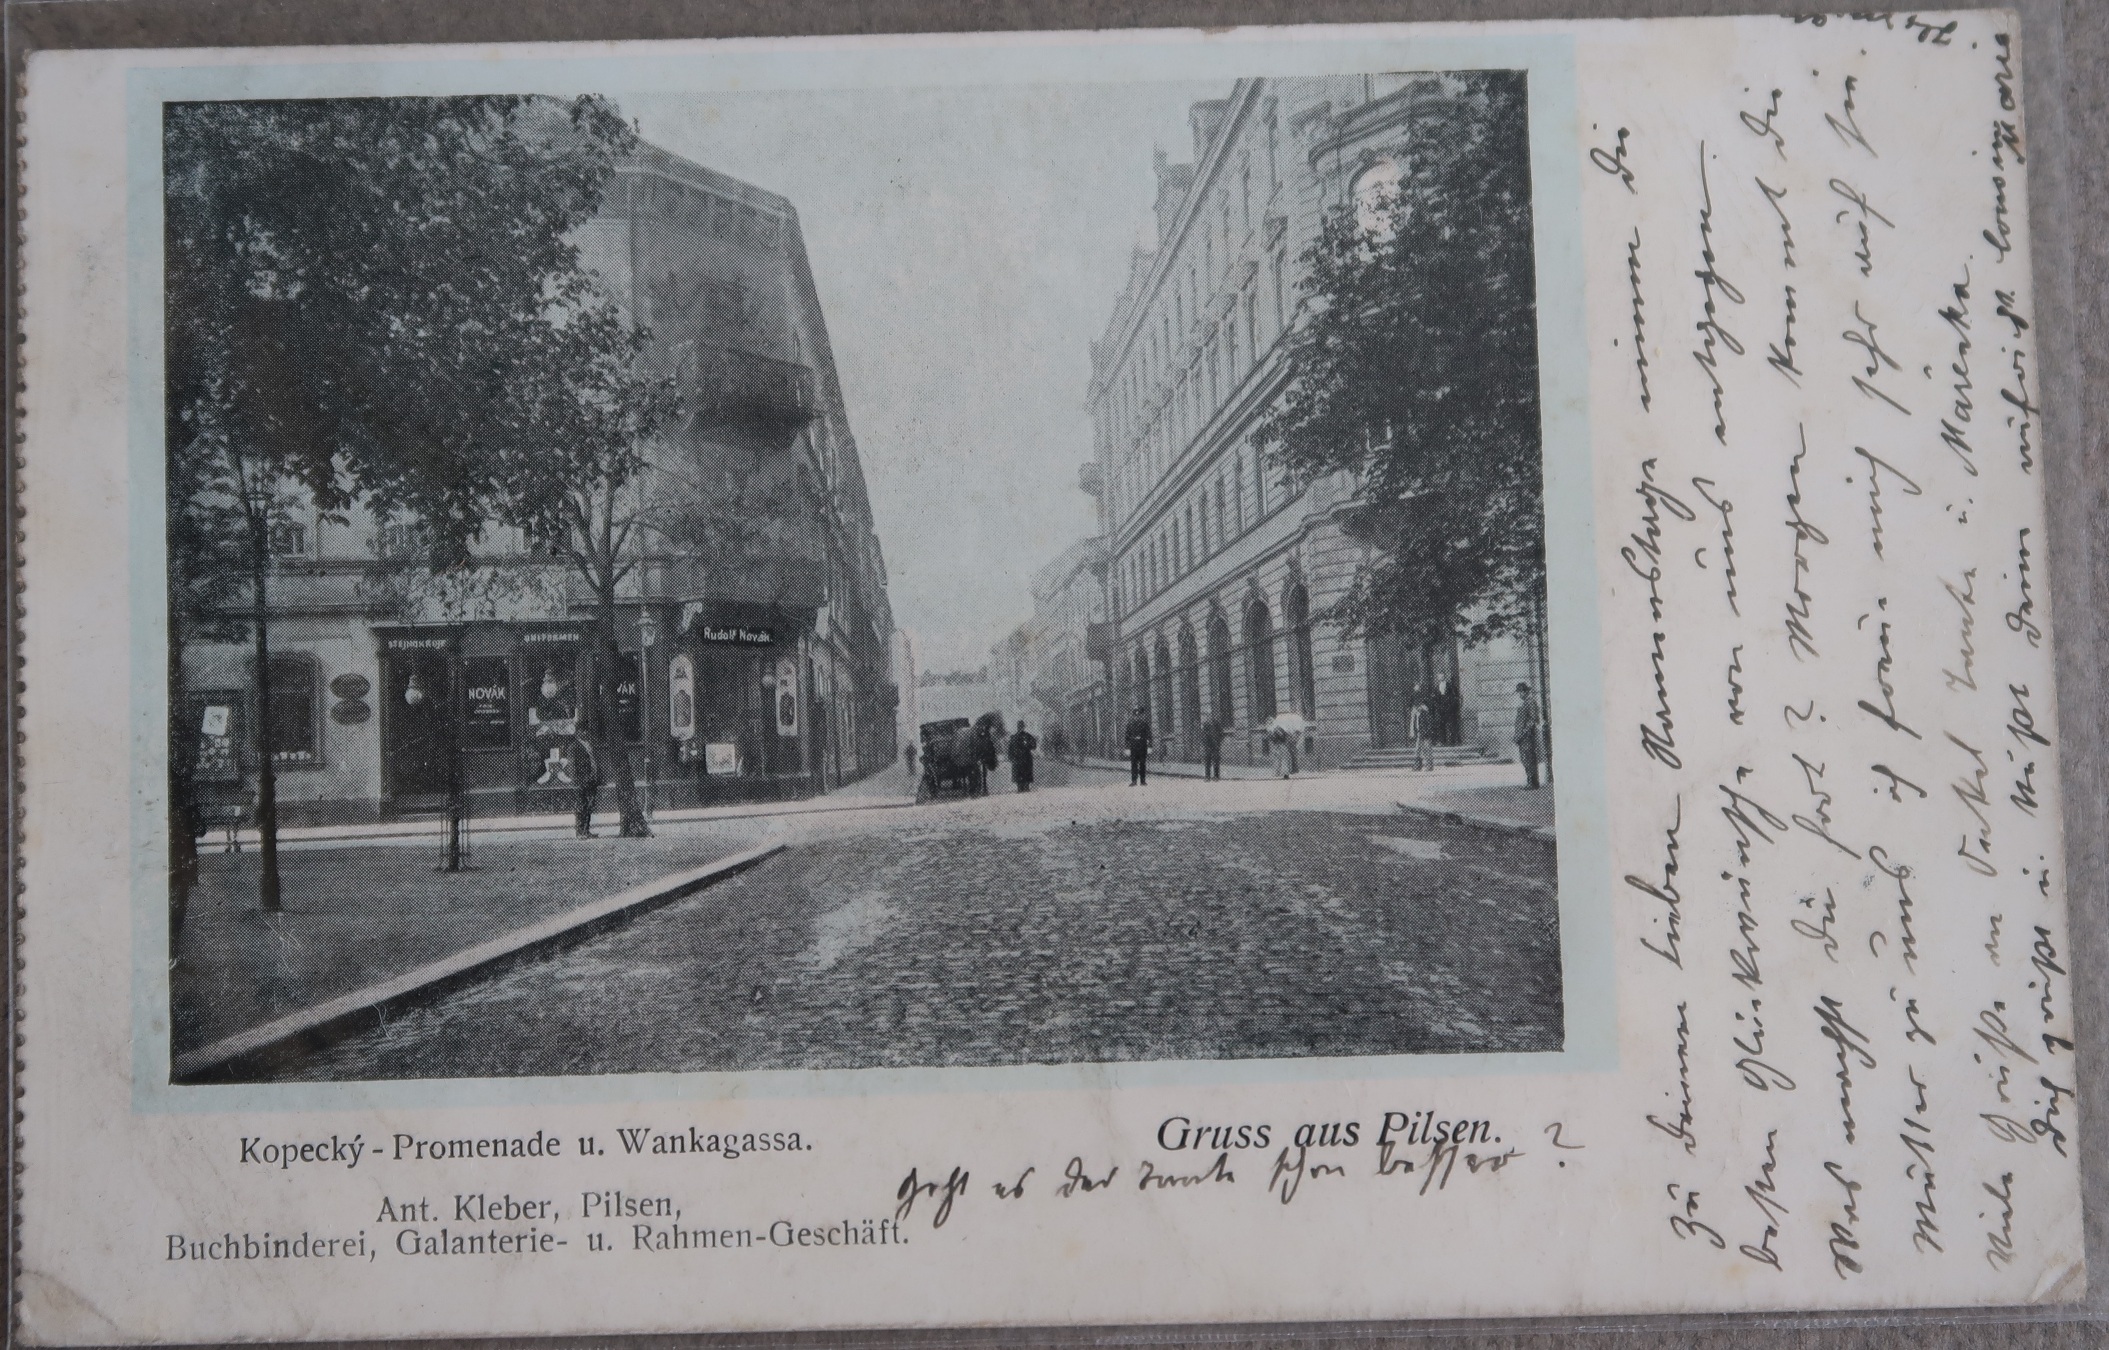 STEJNOKROJE
UNIFORMEN
NOVÁK
Rudolf Novák.
Kopecký - Promenade u. Wankagassa.
Gruss aus Pilsen.
Ant. Kleber, Pilsen,
Buchbinderei, Galanterie- u. Rahmen-Geschäft.
Geht es der Tante schon besser?
Zu deinem lieben Namenstage nimm die
besten Glückwünsche von uns entgegen.
Was machst du fort? Morgen kommt die
Mutter zu uns ich freue mich sehr auf sie.
Viele Grüße an Onkel Tante u. Mařenka.
Dich grüßt u. küßt deine aufricht. Cousine Marie